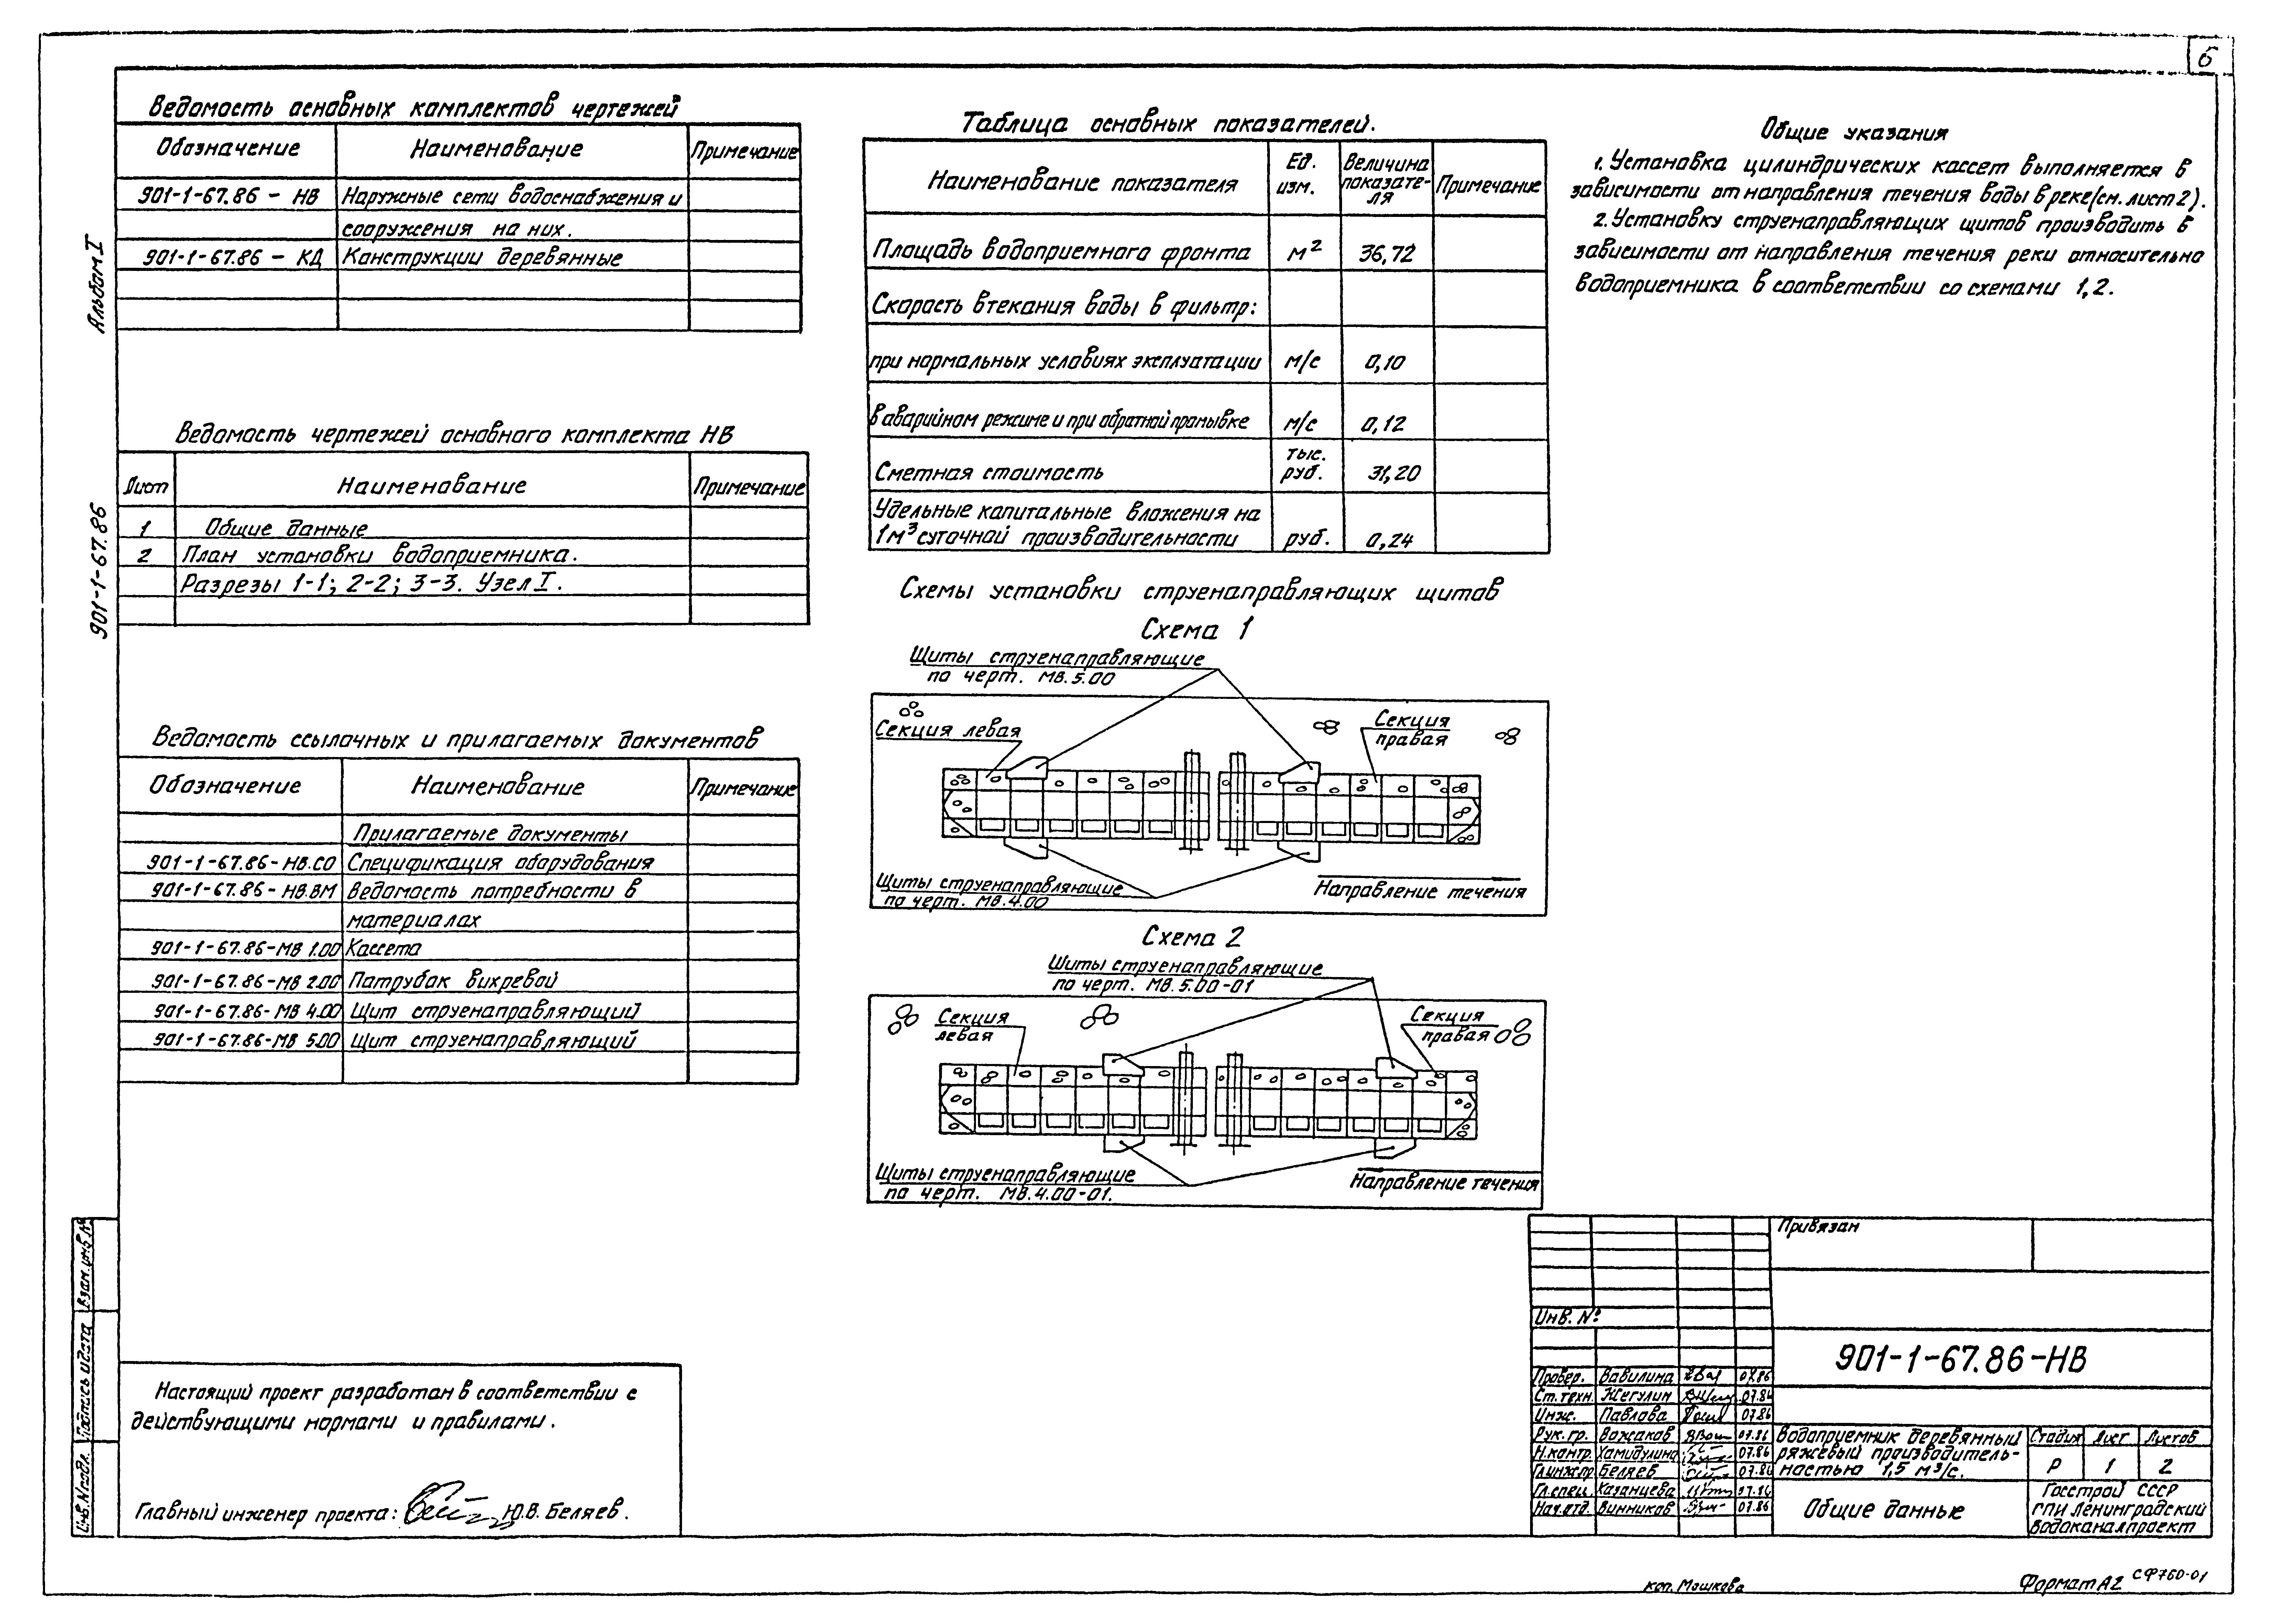 6
Альбом I
901-1-67.86
Ведомость основных комплектов чертежей
Обозначение Наименование Примечание
901-1-67.86 - НВ Наружные сети водоснабжения и
сооружения на них.
901-1-67.86 - КД Конструкции деревянные
Ведомость чертежей основного комплекта НВ
Лист Наименование Примечание
1 Общие данные
2 План установки водоприемника.
Разрезы 1-1; 2-2; 3-3. Узел I.
Ведомость ссылочных и прилагаемых документов
Обозначение Наименование Примечание
Прилагаемые документы
901-1-67.86-НВ.СО Спецификация оборудования
901-1-67.86-НВ.ВМ Ведомость потребности в
материалах
901-1-67.86-МВ 1.00 Кассета
901-1-67.86-МВ 2.00 Патрубок вихревой
901-1-67.86-МВ 4.00 Щит струенаправляющий
901-1-67.86-МВ 5.00 Щит струенаправляющий
Настоящий проект разработан в соответствии с
действующими нормами и правилами.
Главный инженер проекта: Ю.В. Беляев.
Взам.инв.№
Подпись и дата
Инв.№подл.
Таблица основных показателей.
Наименование показателя Ед. изм. Величина показате-ля Примечание
Площадь водоприемного фронта м² 36,72
Скорость втекания воды в фильтр:
при нормальных условиях эксплуатации м/с 0,10
в аварийном режиме и при обратной промывке м/с 0,12
Сметная стоимость тыс. руб. 31,20
Удельные капитальные вложения на
1м³ суточной производительности руб. 0,24
Схемы установки струенаправляющих щитов
Схема 1
Щиты струенаправляющие
по черт. МВ.5.00
Секция левая
Секция
правая
Щиты струенаправляющие
по черт. МВ.4.00
Направление течения
Схема 2
Щиты струенаправляющие
по черт. МВ.5.00-01
Секция
левая
Секция
правая
Щиты струенаправляющие
по черт. МВ.4.00-01.
Направление течения
Общие указания
1. Установка цилиндрических кассет выполняется в
зависимости от направления течения воды в реке(см. лист 2).
2. Установку струенаправляющих щитов производить в
зависимости от направления течения реки относительно
водоприемника в соответствии со схемами 1,2.
Привязан
Инв. №
901-1-67.86-НВ
Провер. Вавилина 07.86
Ст.техн. Жегулин 07.86
Инж. Павлова 07.86
Рук.гр. Вожаков 07.86
Н.контр. Хамидулина 07.86
Гл.инж.пр Беляев 07.86
Гл.спец. Казанцева 07.86
Нач.отд. Винников 07.86
Водоприемник деревянный
ряжевый производитель-
ностью 1,5 м³/с.
Стадия Лист Листов
Р 1 2
Общие данные
Госстрой СССР
ГПИ Ленинградский
Водоканалпроект
коп. Мошкова
Формат А2
СФ760-01